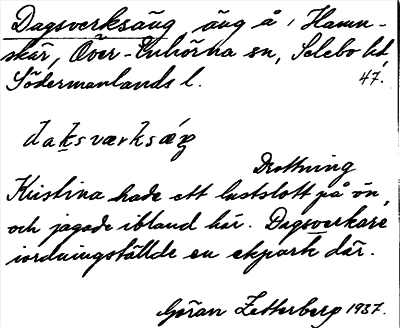 Dagsverksäng, äng å Hamn-
skär, Över-Enhörna sn, Selebo hd,
Södermanlands l. 47.
daksværksäŋ
Drottning
Kristina hade ett lustslott på ön,
och jagade ibland här. Dagsverkare
iordningställde en ekpark där.
Göran Zetterberg 1937.